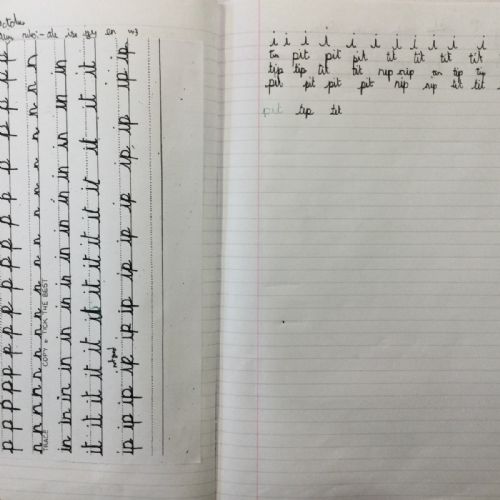 p p p p p p p p p p p p p p p p p
n n n n n n n n n n n n n n n n n
TRACE COPY + TICK THE BEST
in in in in in in in in in in in in in in
it it it it it it it it it it it it it
ip ip ip ip ip ip ip ip ip ip ip ip ip
i i i i i i i i i i i
tin pit pit pit tit tit tit tit
tip tip tit tit nip nip tin tip tip
pit pit pit pit nip nip tit tit
pit tip tit